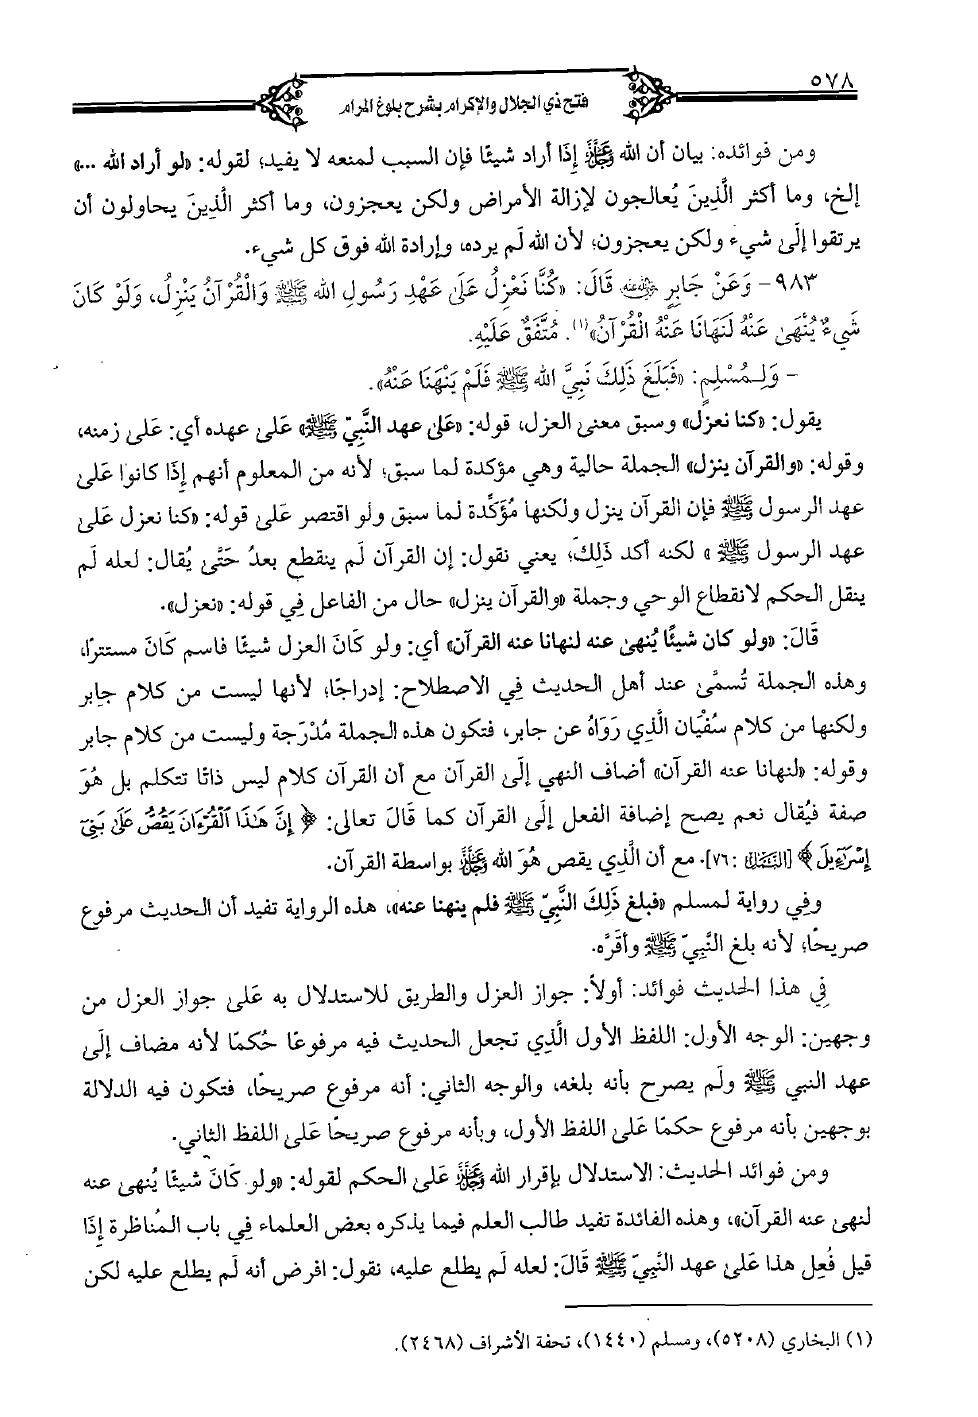 ٥٧٨
فتح ذي الجلال والإكرام بشرح بلوغ المرام
ومن فوائده: بيان أن الله ﷻ إِذَا أراد شيئًا فإن السبب لمنعه لا يفيد؛ لقوله: «لو أراد الله ...»
إلخ، وما أكثر الَّذِينَ يُعالجون لإزالة الأمراض ولكن يعجزون، وما أكثر الَّذِينَ يحاولون أن
يرتقوا إلَىٰ شيء ولكن يعجزون؛ لأن الله لَم يرده، وإرادة الله فوق كل شيء.
٩٨٣- وَعَنْ جَابِرٍ رضي الله عنه قَالَ: «كُنَّا نَعْزِلُ عَلَىٰ عَهْدِ رَسُولِ الله ﷺ وَالْقُرْآنُ يَنْزِلُ، وَلَوْ كَانَ
شَيْءٌ يُنْهَىٰ عَنْهُ لَنَهَانَا عَنْهُ الْقُرْآنُ»(١). مُتَّفَقٌ عَلَيْهِ.
- وَلِـمُسْلِمٍ: «فَبَلَغَ ذَلِكَ نَبِيَّ الله ﷺ فَلَمْ يَنْهَنَا عَنْهُ».
يقول: «كنا نعزل» وسبق معنى العزل، قوله: «عَلَىٰ عهد النَّبِيّ ﷺ» عَلَىٰ عهده أي: عَلَىٰ زمنه،
وقوله: «والقرآن ينزل» الجملة حالية وهي مؤكدة لما سبق؛ لأنه من المعلوم أنهم إِذَا كانوا عَلَىٰ
عهد الرسول ﷺ فإن القرآن ينزل ولكنها مُؤَكِّدة لما سبق ولو اقتصر عَلَىٰ قوله: «كنا نعزل عَلَىٰ
عهد الرسول ﷺ » لكنه أكد ذَلِكَ؛ يعني نقول: إن القرآن لَم ينقطع بعدُ حَتَّىٰ يُقال: لعله لَم
ينقل الحكم لانقطاع الوحي وجملة «والقرآن ينزل» حال من الفاعل فِي قوله: «نعزل».
قَالَ: «ولو كان شيئًا يُنهىٰ عنه لنهانا عنه القرآن» أي: ولو كَانَ العزل شيئًا فاسم كَانَ مستترًا،
وهذه الجملة تُسمَّىٰ عند أهل الحديث فِي الاصطلاح: إدراجًا؛ لأنها ليست من كلام جابر
ولكنها من كلام سُفْيَان الَّذِي رَوَاهُ عن جابر، فتكون هذه الجملة مُدْرَجة وليست من كلام جابر
وقوله: «لنهانا عنه القرآن» أضاف النهي إلَىٰ القرآن مع أن القرآن كلام ليس ذاتًا تتكلم بل هُوَ
صفة فيُقال نعم يصح إضافة الفعل إلَى القرآن كما قَالَ تعالى: ﴿ إِنَّ هَٰذَا ٱلْقُرْءَانَ يَقُصُّ عَلَىٰ بَنِىٓ
إِسْرَٰٓءِيلَ ﴾ [النمل: ٧٦]. مع أن الَّذِي يقص هُوَ الله ﷻ بواسطة القرآن.
وفِي رواية لمسلم «فبلغ ذَلِكَ النَّبِيّ ﷺ فلم ينهنا عنه»، هذه الرواية تفيد أن الحديث مرفوع
صريحًا؛ لأنه بلغ النَّبِيّ ﷺ وأقرَّه.
فِي هذا الحديث فوائد: أولاً: جواز العزل والطريق للاستدلال به عَلَىٰ جواز العزل من
وجهين: الوجه الأول: اللفظ الأول الَّذِي تجعل الحديث فيه مرفوعًا حُكمًا لأنه مضاف إلَىٰ
عهد النبي ﷺ ولَم يصرح بأنه بلغه، والوجه الثاني: أنه مرفوع صريحًا، فتكون فيه الدلالة
بوجهين بأنه مرفوع حكمًا عَلَى اللفظ الأول، وبأنه مرفوع صريحًا عَلَى اللفظ الثاني.
ومن فوائد الحديث: الاستدلال بإقرار الله ﷻ عَلَى الحكم لقوله: «ولو كَانَ شيئًا يُنهى عنه
لنهى عنه القرآن»، وهذه الفائدة تفيد طالب العلم فيما يذكره بعض العلماء فِي باب المُناظرة إِذَا
قيل فُعِل هذا عَلَىٰ عهد النَّبِيّ ﷺ قَالَ: لعله لَم يطلع عليه، نقول: افرض أنه لَم يطلع عليه لكن
(١) البخاري (٥٢٠٨)، ومسلم (١٤٤٠)، تحفة الأشراف (٢٤٦٨).